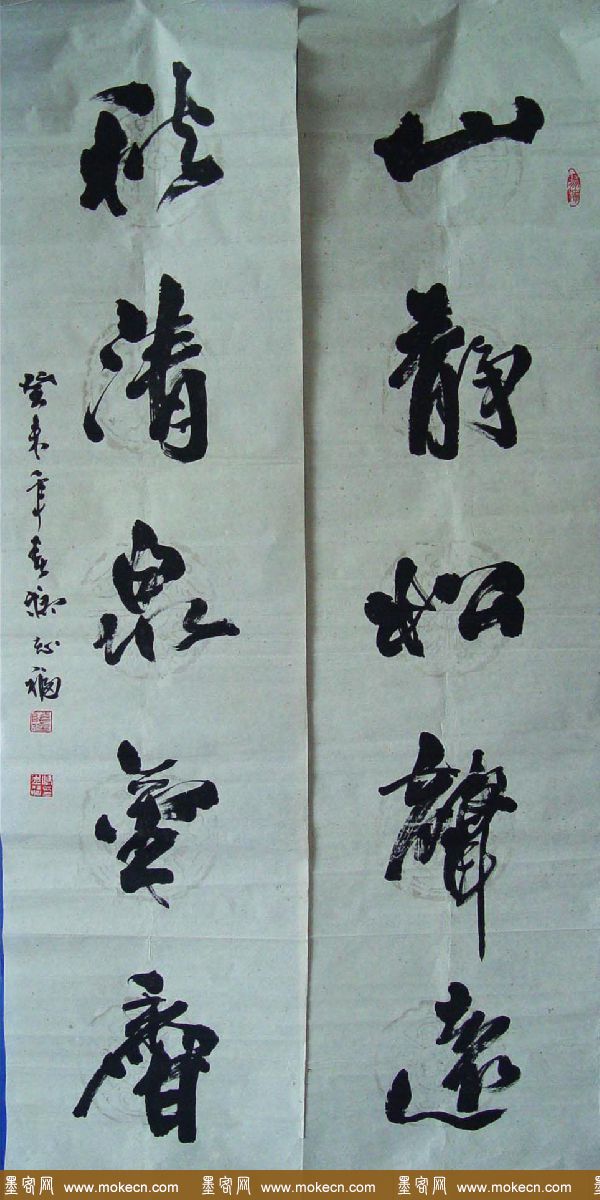 山静松聲遠
秋清泉氣香
癸未年春志福
墨客网 www.mokecn.com 墨客网 www.mokecn.com 墨客网 www.mokecn.com